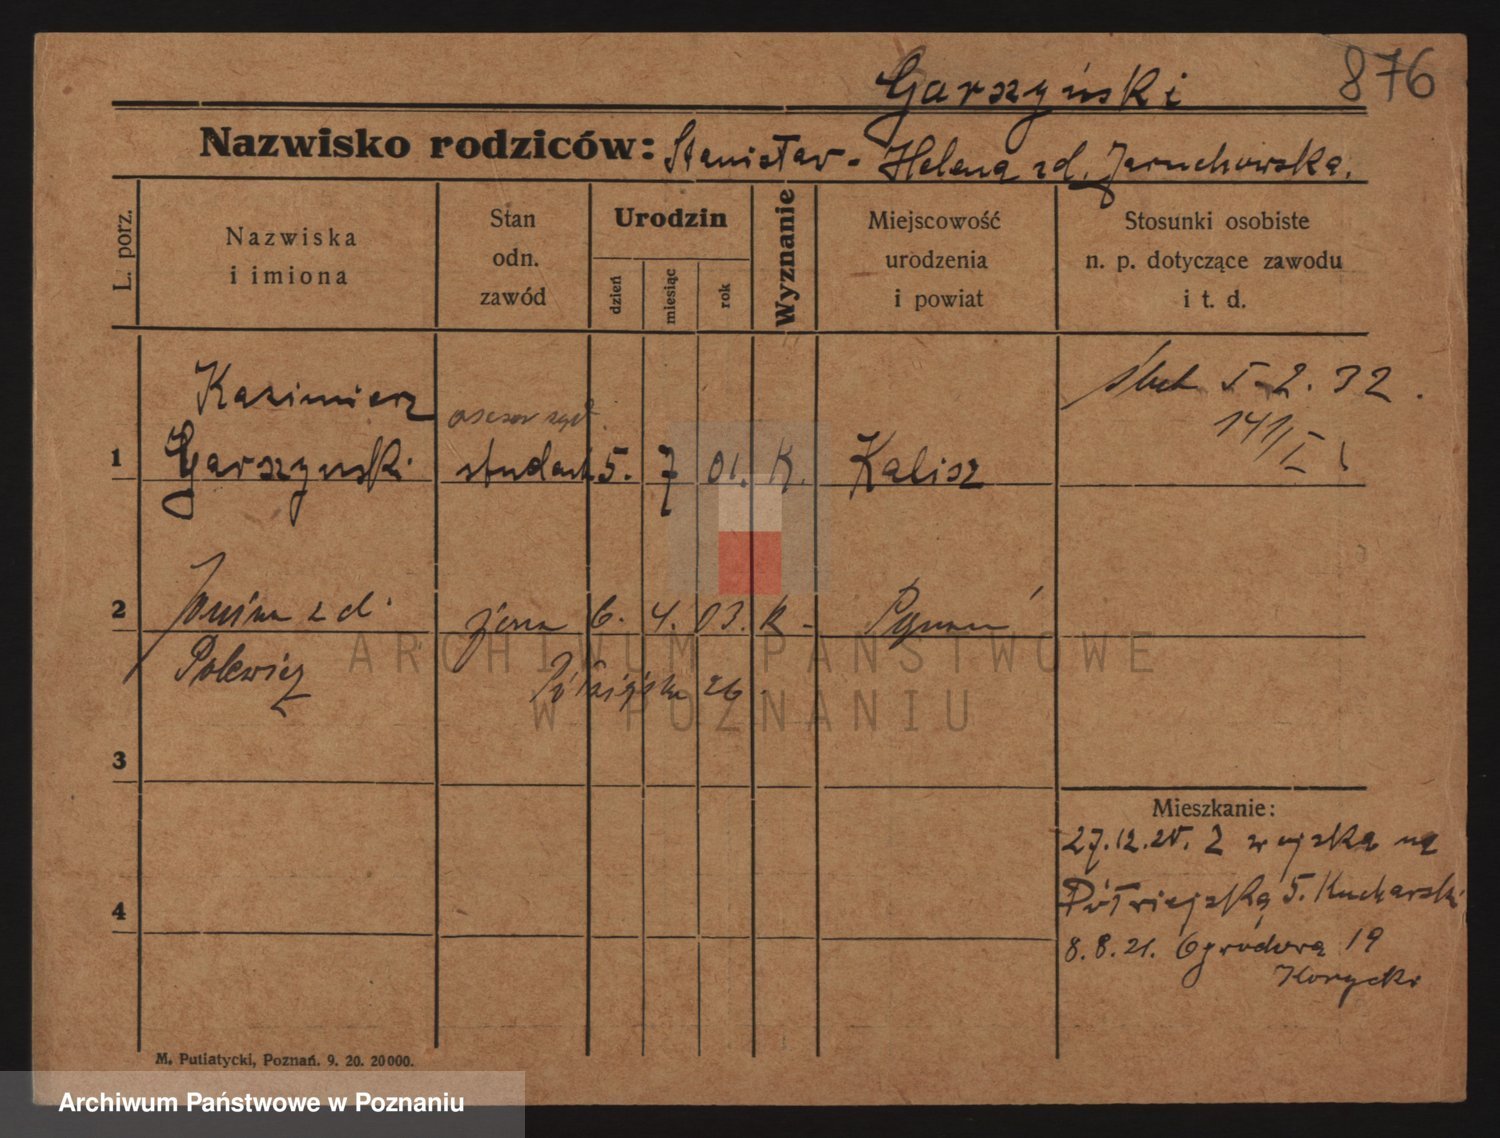 Garszyński 876
Nazwisko rodziców: Stanisław - Helena zd. Jaruchowska.
L. porz.
Nazwiska
i imiona
Stan
odn.
zawód
Urodzin
dzień
miesiąc
rok
Wyznanie
Miejscowość
urodzenia
i powiat
Stosunki osobiste
n. p. dotyczące zawodu
i t. d.
Kazimierz
asesor
1 Garszynski student 5. 7 01. K. Kalisz
2. 32
141/I
2 Janina z d. żona 6. 4. 03. K. Poznań
Polewicz
Półwiejska 26
3
4
Mieszkanie:
27.12.20. Z wojska na
Półwiejską 5. Kucharski
8.8.21. Ogrodowa 19
Korycki
M. Putiatycki, Poznań. 9. 20. 20000.
ARCHIWUM PAŃSTWOWE
W POZNANIU
Archiwum Państwowe w Poznaniu